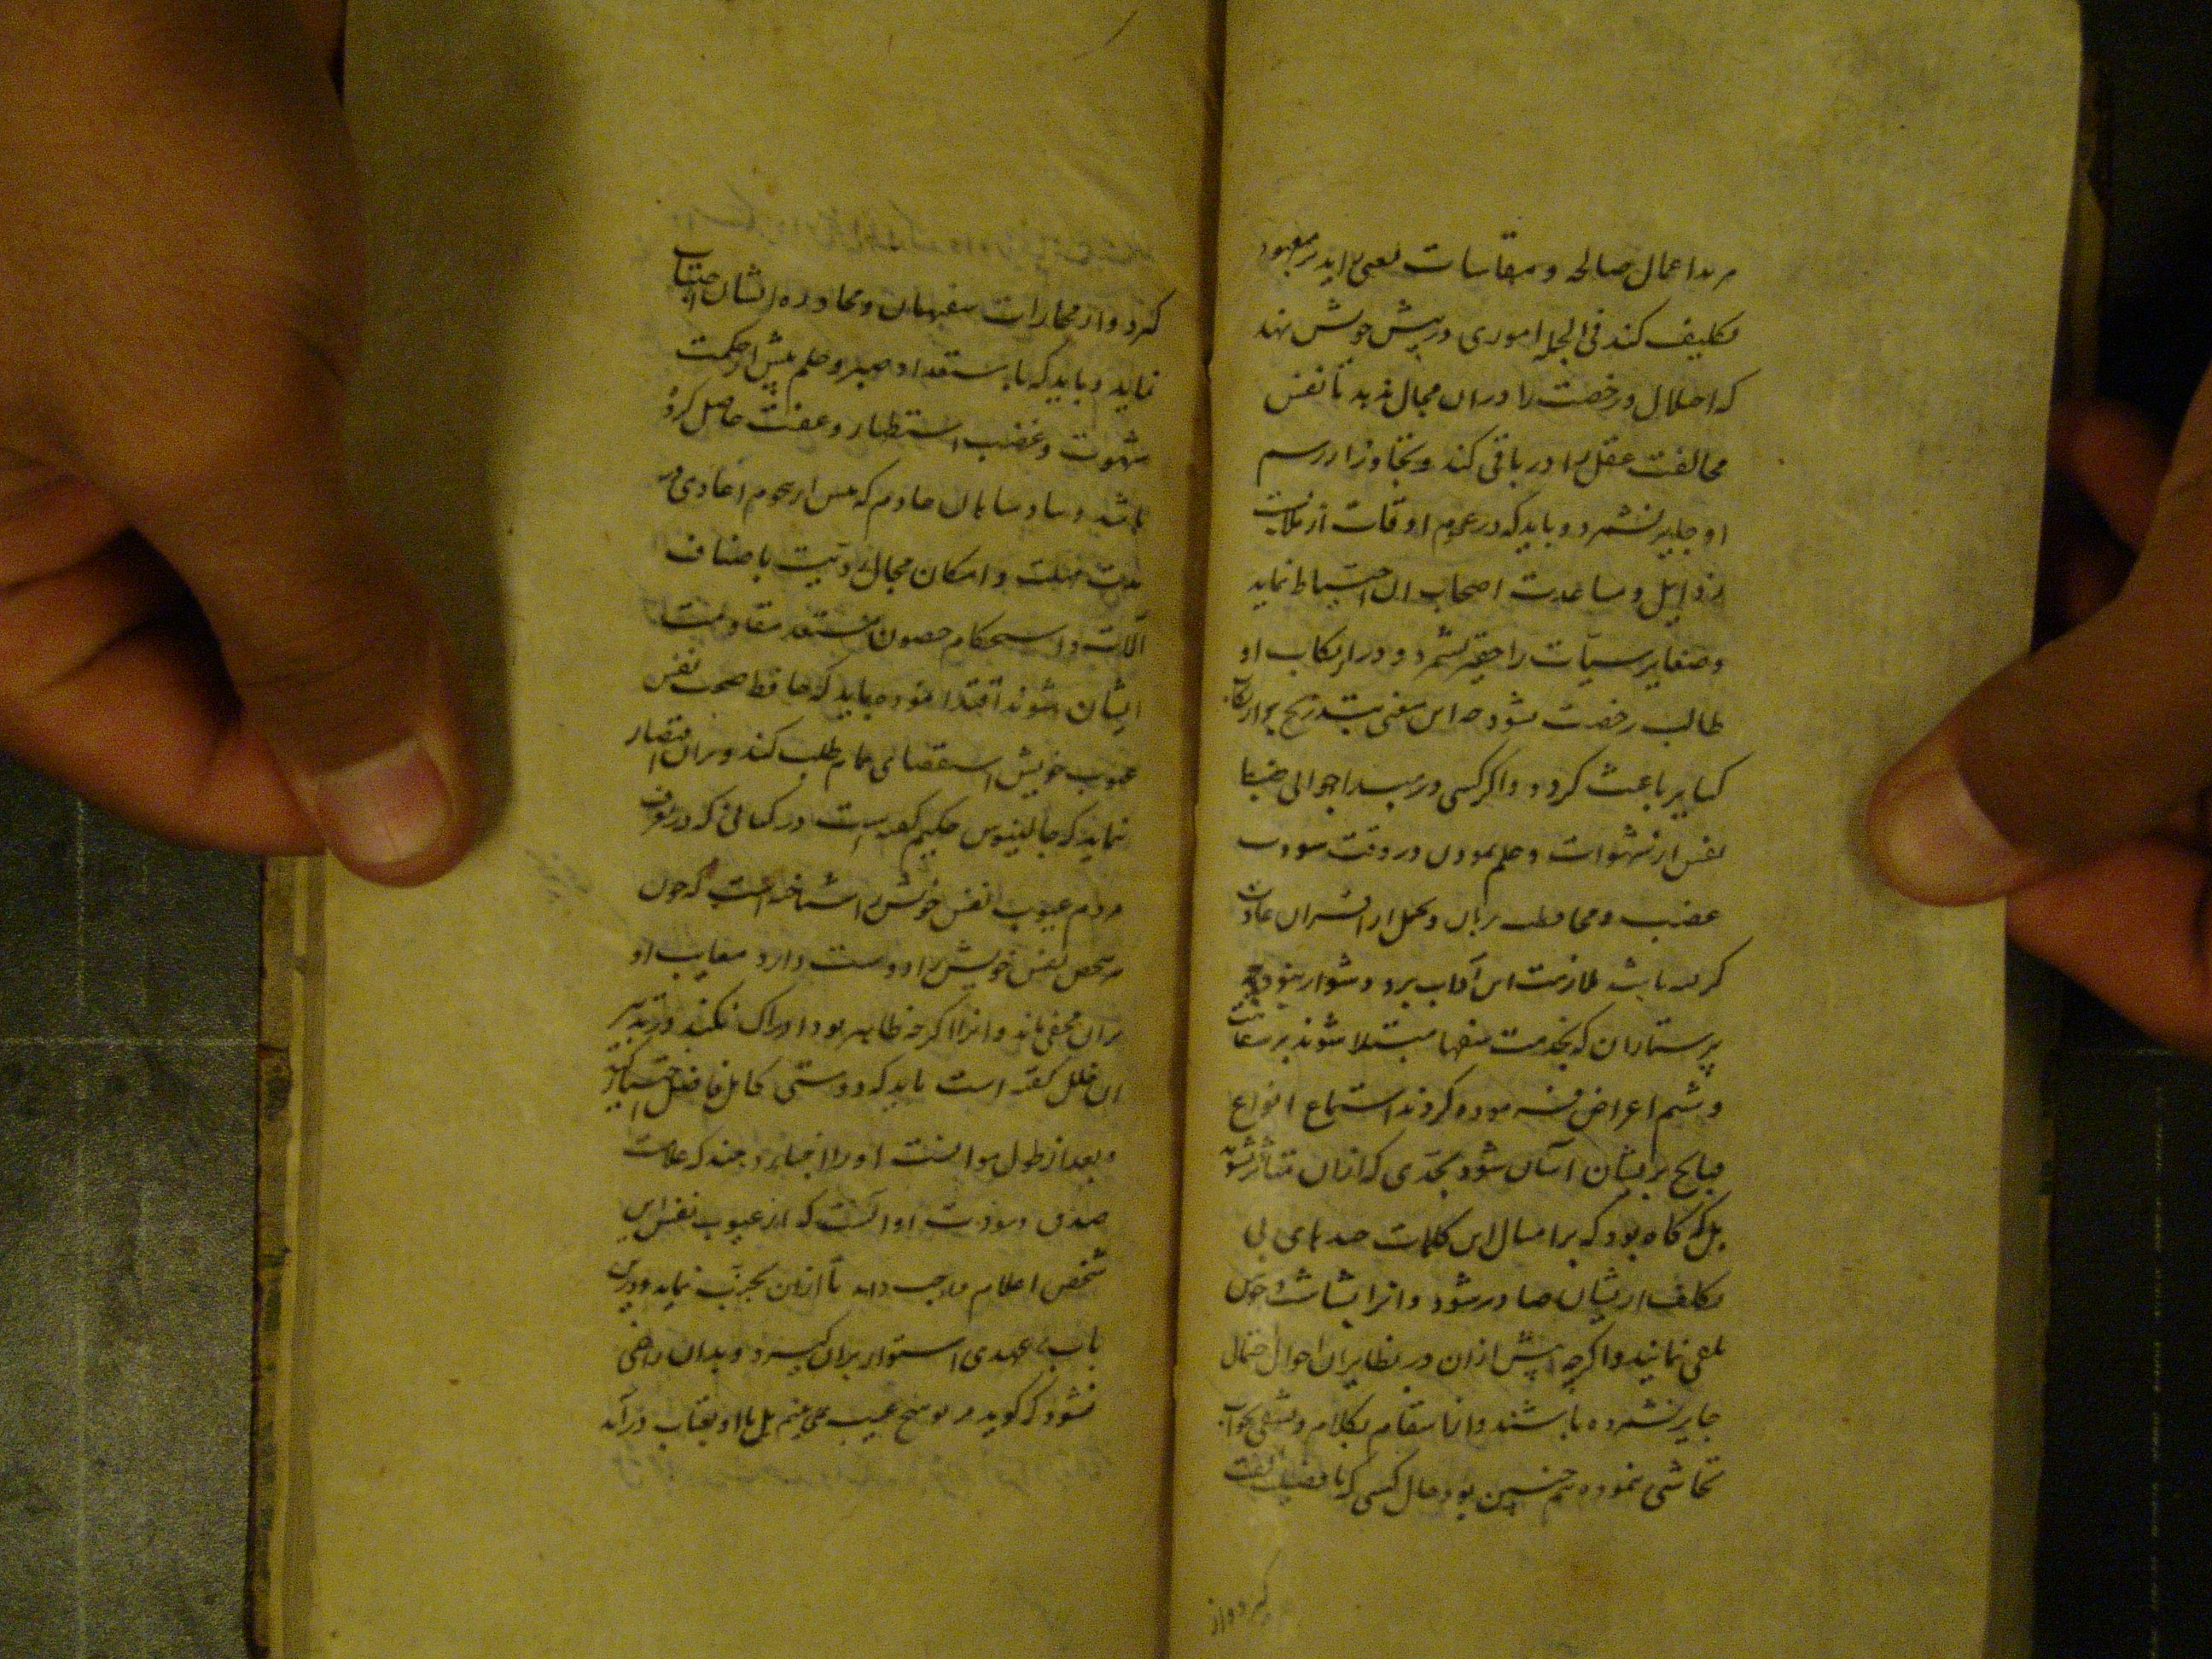 مر بدا عمال صالحه و مقاسات تعبی زاید بر معهود
تکلیف کند فی الجمله اموری در پیش خویش نهد
که اخلال و رخصت را دران مجال ندهد تا نفس
مخالفت عقل را در باقی کند و تجاوز از رسم
او جایز نشمرد و باید که در عموم اوقات از ملابست
رذایل و مساعدت اصحاب ان احتیاط نماید
و صغایر سیآت را حقیر نشمرد و در ارتکاب او
طالب رخصت نشود چه این معنی بتدریج بر ارتکاب
کبایر باعث کردد و اکر کسی در مبدا جوانی ضبط
نفس از شهوات و حلم نمودن در وقت سورت
غضب و محافظت زبان و تحمل از اقران عادت
کرده باشد ملازمت این آداب برو دشوار نبود چه
پرستاران که بخدمت سفها مبتلا شوند بر سفاهت
و شتم اعراض فرسوده کردند استماع انواع
قبایح بر ایشان آسان شود بحدی که ازان متاثر نشوند
بل که کاه بود که بر امثال این کلمات خنده های بی
تکلف از ایشان صادر شود و انرا بشاشت و خوش
تلقی نمایند و اکرچه پیش ازان در نظایر ان احوال احتمال
جایز نشمرده باشند و از انتقام بکلام و تشفی بجواب
تحاشی ننموده هم چنین بود حال کسی که با فضیلت الفت
کیرد و از
کیرد و از مجارات سفیهان و محاوره ایشان اجتناب
نماید و باید که باستعداد صبر و حلم پیش از حرکت
شهوت و غضب استظهار و عفت حاصل کرده
باشد
مدت مهلت و امکان مجال رویت باصناف
آلات و استحکام حصون مستعد مقاومت
ایشان شوند اقتدا نموده و باید که حافظ صحت نفس
عیوب خویش استقصای تمام طلب کند و بران اقتصار
نماید که جالینوس حکیم کفته است در کتابی که در تعریف
مردم عیوب نفس خویش را ساخته است که چون
هر شخص نفس خویش را دوست دارد معایب او
بران مخفی ماند و انرا اکرچه ظاهر بود ادراک نکند و در تدبیر
ان خلل کفته است باید که دوستی کامل فاضل اختیار کند
و بعد از طول موانست او را اخبار دهد که علامت
صدق مودت او انست که از عیوب نفس این
شخص اعلام واجب داند تا ازان تجنب نماید و درین
باب عهدی استوار بران کیرد و بدان راضی
نشود که کوید در تو هیچ عیب نمی بینم بل با او بعتاب درآید